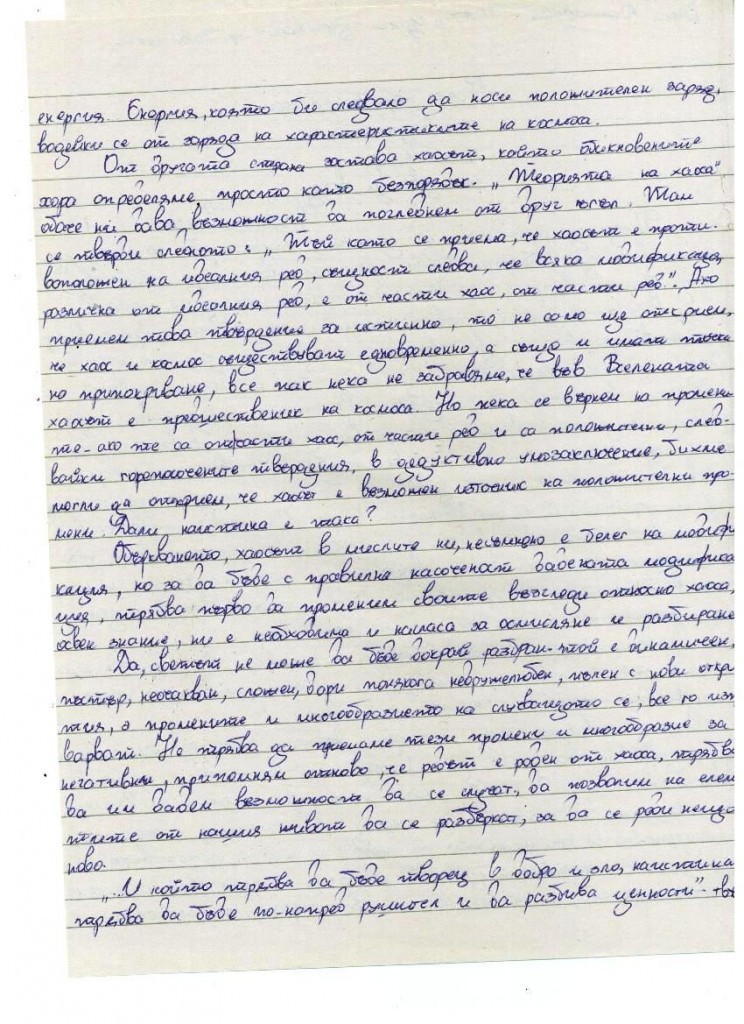 енергия. Енергия, която би следвало да носи положителен заряд,
водейки се от заряда на характеристиките на космоса.
От другата страна застава хаосът, който обикновените
хора определяме, просто като безпорядък. „Теорията на хаоса"
обаче ни дава възможност да погледнем от друг ъгъл. Там
се твърди следното: „Тъй като се приема, че хаосът е проти-
воположен на идеалния ред, същност следва, че всяка модификация,
различна от идеалния ред, е от части хаос, от части ред." Ако
приемем това твърдение за истинно, то не само ще открием,
че хаос и космос съществуват едновременно, а също и имат точка
на припокриване, все пак нека не забравяме, че във Вселената
хаосът е предшественик на космоса. Но нека се върнем на промени
те - ако те са от части хаос, от части ред и са положителни, след-
вайки горепосочените твърдения, в дедуктивно умозаключение, бихме
могли да открием, че хаосът е възможен източник на положителни про-
мени. Дали наистина е така?
Объркването, хаосът в мислите ни, несъмнено е белег на модифи
кация, но за да бъде с правилна насоченост дадената модифика
ция, трябва първо да променим своите възгледи относно хаоса,
освен знание, ни е необходима и нагласа за осмисляне и разбиране
Да, светът не може да бъде докрай разбран - той е динамичен,
пъстър, неочакван, сложен, дори понякога недружелюбен, пълен с нови откри
тия, а промените и многообразието на случващото се, все го изп
варват. Но трябва да приемаме тези промени и многообразие за
негативни, припомням отново, че редът е роден от хаоса, трябва
да им дадем възможност да се случат, да позволим на елем
тите от нашия живот да се разбъркат, за да се роди нещо
ново.
„.. И който трябва да бъде творец в добро и зло, наистина
трябва да бъде по-напред рушител и да разбива ценности" - тв